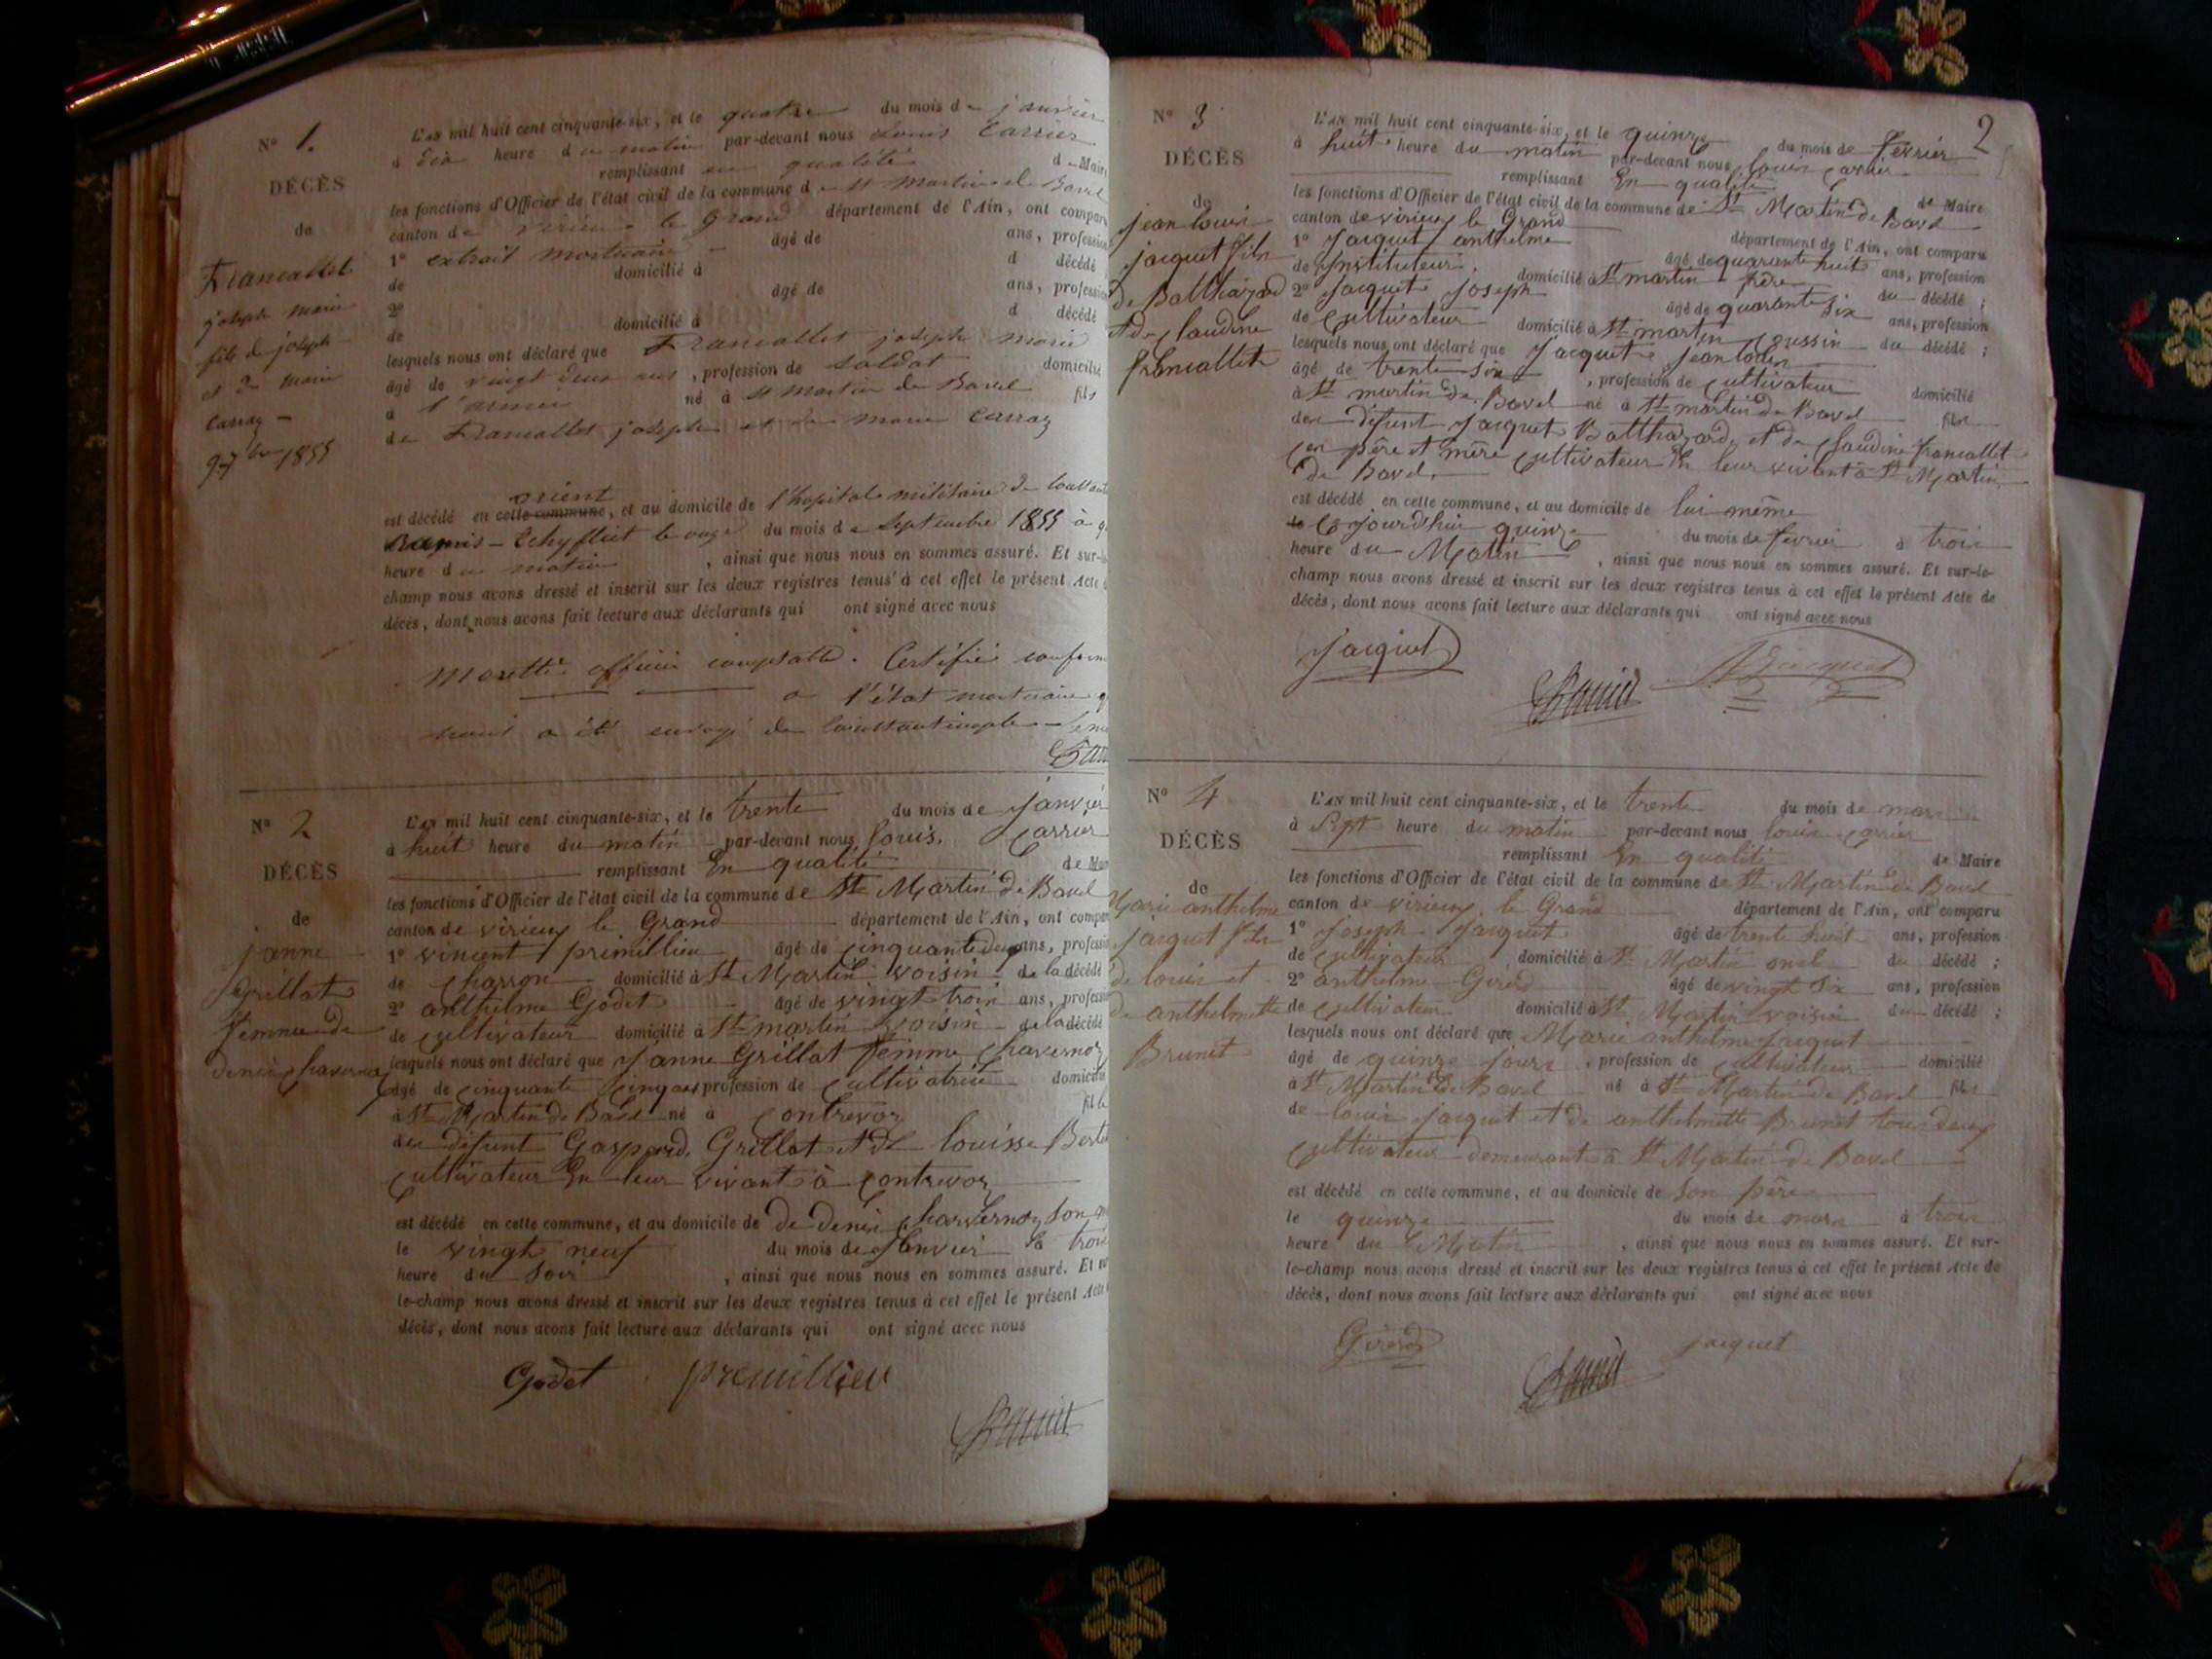 N° 1.
DÉCÈS
de
Francallet
joseph marie
fils de joseph
et de marie
Carraz
1855
L'AN mil huit cent cinquante-six, et le quatre du mois de janvier
à dix heure du matin par-devant nous Louis Carrier
remplissant en qualité de Maire
les fonctions d'Officier de l'état civil de la commune de st martin de Bavel
canton de virieu le grand département de l'Ain, ont comparu
1° extrait mortuaire âgé de ans, profession
de domicilié à d décédé
2° âgé de ans, profession
de domicilié à d décédé
lesquels nous ont déclaré que Francallet joseph marie
âgé de vingt deux ans, profession de soldat domicilié
à l'armée né à st martin de Bavel fils
de Francallet joseph et de marie Carraz
orient
est décédé en cette commune, et au domicile de l'hopital militaire de
le onze du mois de Septembre 1855 à
heure du matin, ainsi que nous nous en sommes assuré. Et sur-le-
champ nous avons dressé et inscrit sur les deux registres tenus à cet effet le présent Acte
décès, dont nous avons fait lecture aux déclarants qui ont signé avec nous
officier comptable. Certifié conforme
a l'état mortuaire
nous a été envoyé de Constantinople
N° 2
DÉCÈS
de
janne
Grillat
femme de
denis chavernoz
L'AN mil huit cent cinquante-six, et le trente du mois de janvier
à huit heure du matin par-devant nous, Louis, Carrier
remplissant En qualité de Maire
les fonctions d'Officier de l'état civil de la commune de St Martin de Bavel
canton de virieux le Grand département de l'Ain, ont comparu
1° vincent primillieu âgé de cinquante deux ans, profession
de charron domicilié à St Martin voisin de la décédé
2° anthelme Godet âgé de vingt trois ans, profession
de cultivateur domicilié à St martin voisin de la décédé
lesquels nous ont déclaré que janne Grillat femme chavernoz
âgé de cinquante cinq ans profession de cultivatrice domicilié
à St Martin de Bavel né à Contrevoz fille
de défunt Gaspard, Grillat et de louisse
cultivateur En leur vivant à Contrevoz
est décédé en cette commune, et au domicile de de denis charvernoz son
le vingt neuf du mois de Janvier à trois
heure du soir, ainsi que nous nous en sommes assuré. Et sur
le-champ nous avons dressé et inscrit sur les deux registres tenus à cet effet le présent Acte
décès, dont nous avons fait lecture aux déclarants qui ont signé avec nous
Godet premillieu
2
N° 3
DÉCÈS
de
jean louis
jacquet fils
de Balthazard
et de claudine
francallet
L'AN mil huit cent cinquante-six, et le quinze du mois de fevrier
à huit heure du matin par-devant nous, louis Carrier
remplissant En qualité de Maire
les fonctions d'Officier de l'état civil de la commune de St Martin de Bavel
canton de virieux le Grand département de l'Ain, ont comparu
1° Jacquet anthelme âgé de quarante huit ans, profession
de Instituteur, domicilié à St martin frère du décédé ;
2° Jacquet Joseph âgé de quarante six ans, profession
de cultivateur domicilié à St martin coussin du décédé ;
lesquels nous ont déclaré que Jacquet jean louis
âgé de trente six, profession de cultivateur domicilié
à St martin de Bavel né à St martin de Bavel fils
de défunt Jacquet Balthazard, et de claudine francallet
père et mère cultivateur En leur vivant à St Martin
de Bavel.
est décédé en cette commune, et au domicile de lui même
quinze du mois de fevrier à trois
heure du Matin, ainsi que nous nous en sommes assuré. Et sur-le-
champ nous avons dressé et inscrit sur les deux registres tenus à cet effet le présent Acte de
décès, dont nous avons fait lecture aux déclarants qui ont signé avec nous
Jacquet
Jacquet
N° 4
DÉCÈS
de
Marie anthelme
jacquet fils
de louis et
de anthelmette
Brunet
L'AN mil huit cent cinquante-six, et le trente du mois de mars
à Sept heure du matin par-devant nous louis Carrier
remplissant En qualité de Maire
les fonctions d'Officier de l'état civil de la commune de St Martin de Bavel
canton de virieux le Grand département de l'Ain, ont comparu
1° Joseph Jacquet âgé de trente huit ans, profession
de cultivateur domicilié à St Martin oncle du décédé ;
2° anthelme Girod âgé de vingt six ans, profession
de cultivateur domicilié à St Martin voisin du décédé ;
lesquels nous ont déclaré que Marie anthelme Jacquet
âgé de quinze jours, profession de cultivateur domicilié
à St Martin de Bavel né à St Martin de Bavel fils
de louis Jacquet et de anthelmette Brunet tous deux
cultivateur demeurant à St Martin de Bavel
est décédé en cette commune, et au domicile de Son père
le quinze du mois de mars à trois
heure du Matin, ainsi que nous nous en sommes assuré. Et sur-
le-champ nous avons dressé et inscrit sur les deux registres tenus à cet effet le présent Acte de
décès, dont nous avons fait lecture aux déclarants qui ont signé avec nous
Girod
jacquet